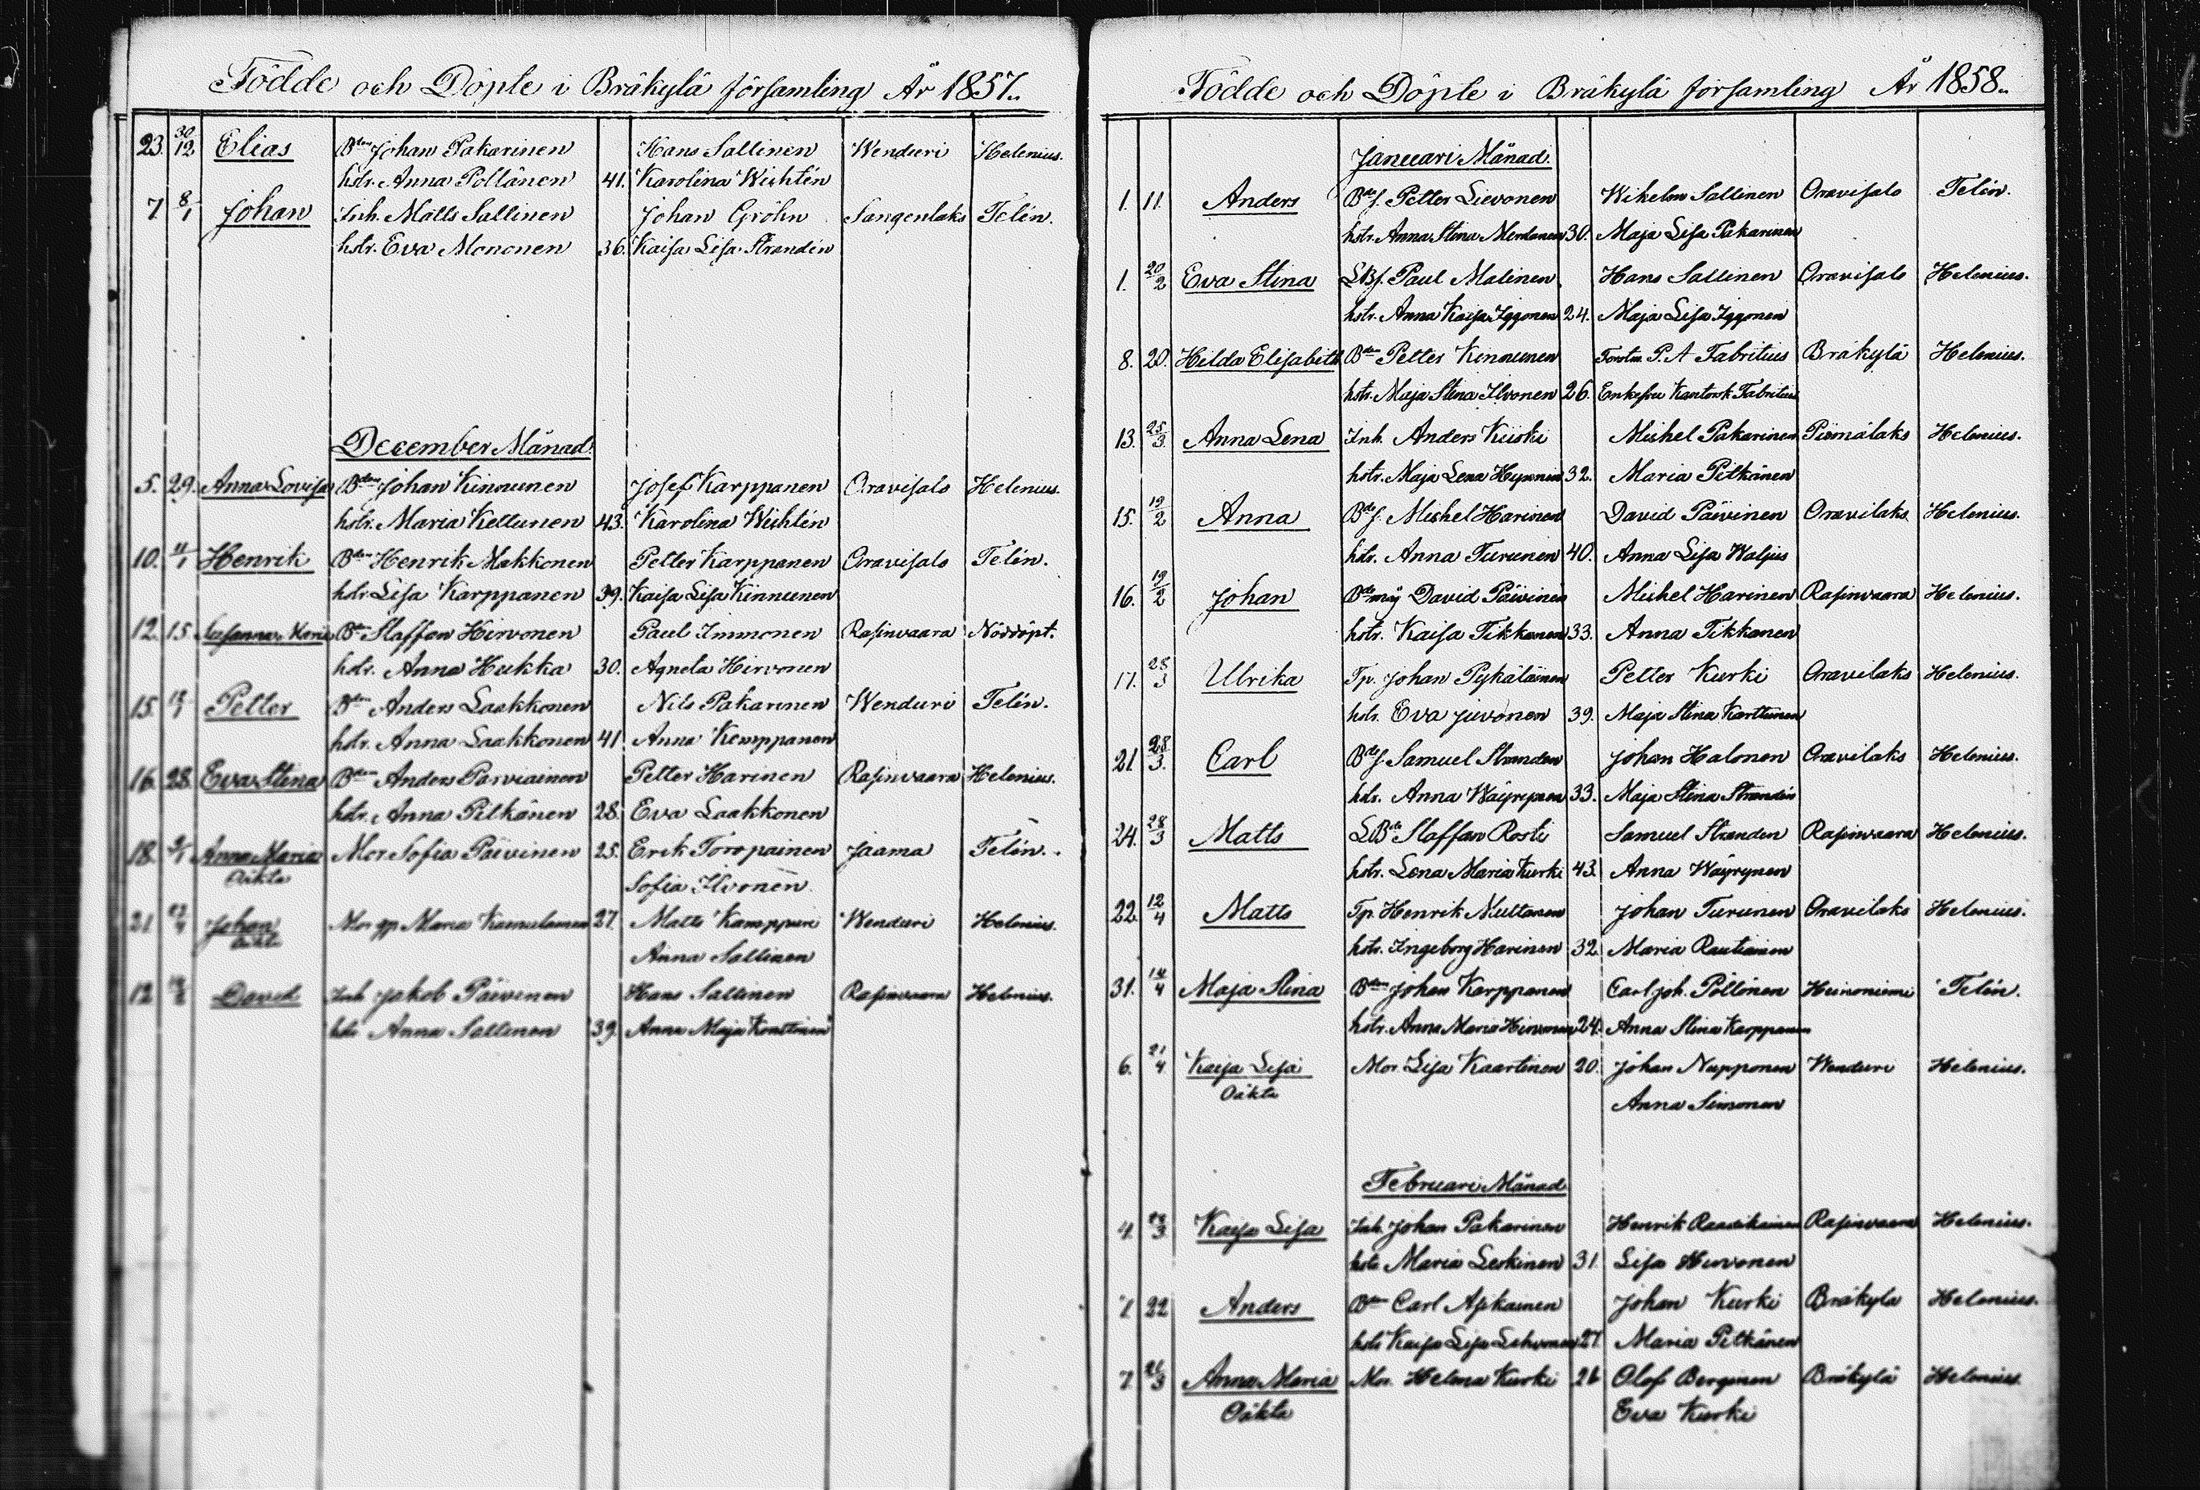 Födde och Döpte i Bräkylä församling År 1857.
23. 30/12 Elias Bden Johan Pakarinen Hans Sallinen Wenduri Helenius.
hstr. Anna Pollänen 41. Karolina Wishtén
7 8/1 Johan Inh. Matts Sallinen Johan Gröhn Sangenlaks Telén.
hstr. Eva Mononen 36. Kaisa Lisa Strandén
December Månad.
5. 29. Anna Lovisa Bden Johan Kinnunen Josef Karppanen Oravisalo Helenius.
hstr. Maria Kettunen 43. Karolina Wishtén
10. 11/1 Henrik Bden Henrik Makkonen Petter Karppanen Oravisalo Telén.
hstr. Lisa Karppanen 39. Kaisa Lisa Kinnunen
12. 15 Susanna Maria Bden Staffan Hirvonen Paul Immonen Rasinvaara Nöddöpt.
hstr. Anna Hukka 30. Agneta Hirvonen
15. Petter Bden Anders Laakkonen Nils Pakarinen Wenduri Telén.
hstr. Anna Laakkonen 41 Anna Kemppanen
16. 28. Eva Stina Bden Anders Parviainen Petter Harinen Rasinvaara Helenius.
hstr. Anna Pitkänen 28. Eva Laakkonen
18. Anna Maria Mor Sofia Päivinen 25. Erik Toropainen Jaama Telén.
Oäkta Sofia Ilvonen
21 Johan Mor Maria 27. Matts Kamppuri Wenduri Helenius.
Oäkta Anna Sallinen
12 David Inh Jakob Päivinen Hans Sallinen Rasinvaara Helenius.
hstr Anna Sallinen 39. Anna Maja
Födde och Döpte i Bräkylä församling År 1858.
Januari Månad.
1. 11. Anders Bdes. Petter Lievonen Wilhelm Sallinen Oravisalo Telén.
hstr. Anna Stina 30. Maja Lisa Pakarinen
1. 20/2 Eva Stina LBs. Paul Malinen Hans Sallinen Oravisalo Helenius.
hstr. Anna Kaisa Iggonen 24. Maja Lisa Iggonen
8. 20. Helda Elisabeth Bden Petter Kinnunen P. A Fabritius Bräkylä Helenius.
hstr. Maja Stina Ilvonen 26. Enkefru Fabritius
13. 25/3 Anna Lena Inh. Anders Kiiski Michel Pakarinen Piimälaks Helenius.
hstr. Maja Lena Hyvönen 32. Maria Pitkänen
15. 19/2 Anna Bdes. Mishel Harinen David Päivinen Oravilaks Helenius.
hstr. Anna Turunen 40. Anna Lisa Waljus
16. 19/2 Johan Bdemåg David Päivinen Mishel Harinen Rasinvaara Helenius.
hstr. Kaisa Tikkanen 33. Anna Tikkanen
17. 28/3 Ulrika Tp. Johan Pykäläinen Petter Kurki Oravilaks Helenius.
hstr. Eva Juvonen 39. Maja Stina Karttunen
21 28/3. Carl Bdes. Samuel Stranden Johan Halonen Oravilaks Helenius.
hstr. Anna Wäyrynen 33. Maja Stina Strandén
24. 28/3 Matts LBde Staffan Rosti Samuel Stranden Rasinvaara Helenius.
hstr. Lena Maria Kurki 43. Anna Wäyrynen
22. 12/4 Matts Tp Henrik Multanen Johan Turunen Oravilaks Helenius.
hstr. Ingeborg Harinen 32 Maria Rautiainen
31. 14/4 Maja Stina Bden Johan Karppanen Carl Joh. Pöllönen Heinoniemi Telén.
hstr. Anna Maria Hirvonen 24. Anna Stina Karppanen
6. 21/4 Kaisa Lisa Mor. Lisa Kaartinen 20. Johan Nupponen Wenduri Helenius.
Oäkta Anna Simonen
Februari Månad
4. Kaisa Lisa Inh. Johan Pakarinen Henrik Raadikainen Rasinvaara Helenius.
hstr Maria Leskinen 31. Lisa Hirvonen
7 22 Anders Bden Carl Asikainen Johan Kurki Bräkylä Helenius.
hstr Kaisa Lisa 27 Maria Pitkänen
7. 21/3 Anna Maria Mor. Helena Kurki 26 Olof Bergman Bräkylä Helenius.
Oäkta Eva Kurki